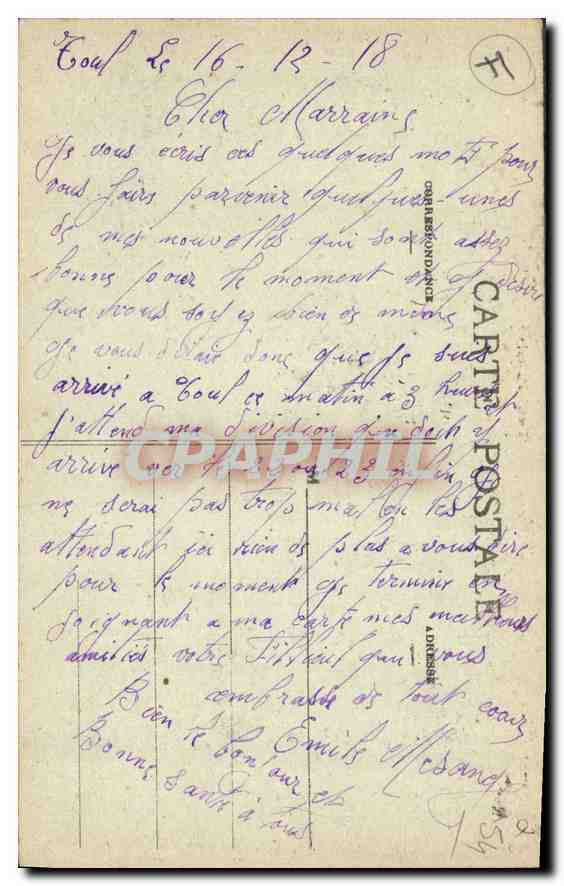 Toul Le 16-12-18
F
Cher Marraine
Je vous écris ces quelques mots pour
vous faire parvenir quelques-unes
de mes nouvelles qui sont assez
bonne pour le moment et je désire
que vous soiyez bien de même
Je vous dirai donc que je suis
arrivé a Toul ce matin à 3 heures
j'attend ma division qui doit y
arrivé ver le 22 ou 23
ne serai pas trop mal on les
attendant ici rien de plas a vous dire
pour le moment je termine en
joignant a ma carte mes meilleurs
amitiés votre Filleul que vous
embrasse de tout coeur
Emile
Bien le bonjour et
Bonne santé à tous
54
CORRESPONDANCE
CARTE POSTALE
ADRESSE
CPAPHIL